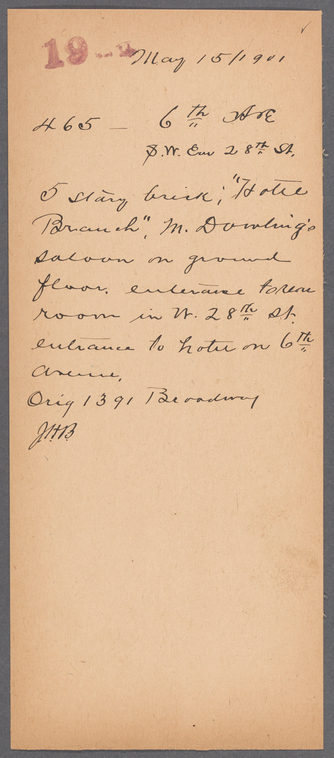 19
May 15/1901
465 — 6th Ave
S.W. Cor 28th St.
5 story brick; "Hotel
Branch", M. Dowling's
saloon on ground
floor. entrance to rear
room in W. 28th St.
entrance to hotel on 6th
Avenue.
Orig 1391 Broadway
J.H.B.